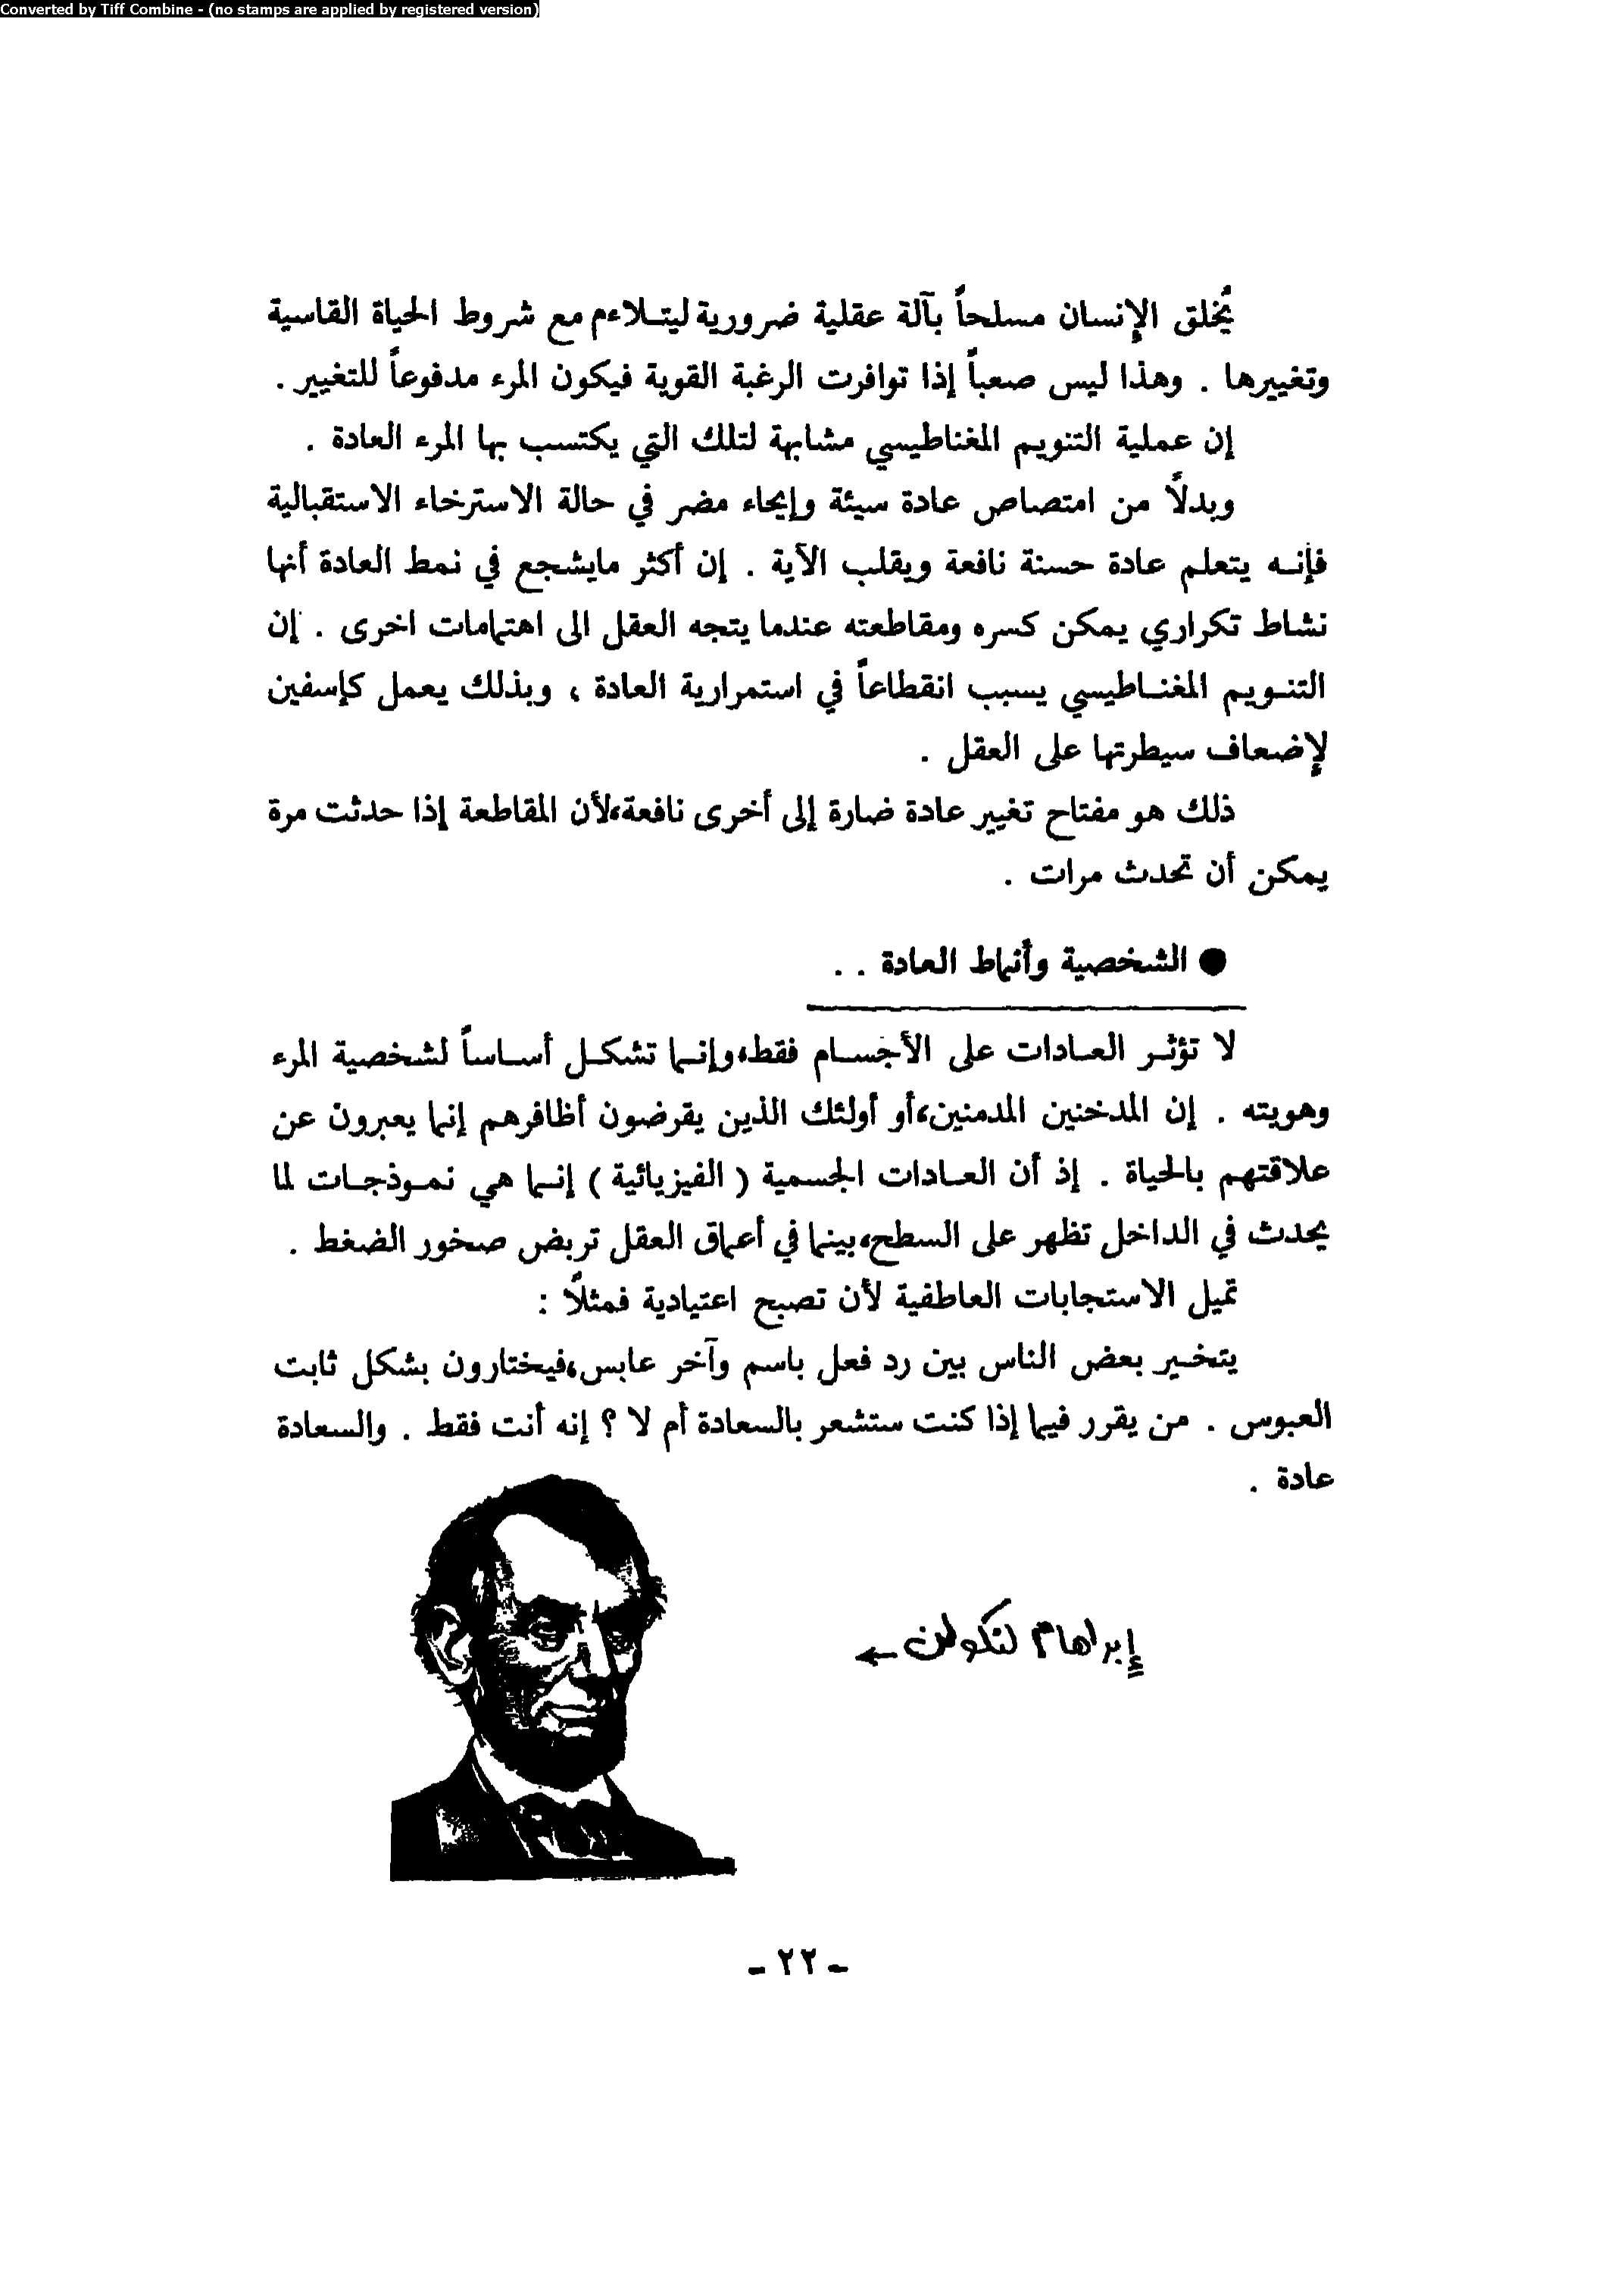 Converted by Tiff Combine - (no stamps are applied by registered version)
يُخلق الإنسان مسلحاً بآلة عقلية ضرورية ليتلاءم مع شروط الحياة القاسية
وتغييرها . وهذا ليس صعباً إذا توافرت الرغبة القوية فيكون المرء مدفوعاً للتغيير .
إن عملية التنويم المغناطيسي مشابهة لتلك التي يكتسب بها المرء العادة .
وبدلاً من امتصاص عادة سيئة وإيحاء مضر في حالة الاسترخاء الاستقبالية
فإنه يتعلم عادة حسنة نافعة ويقلب الآية . إن أكثر مايشجع في نمط العادة أنها
نشاط تكراري يمكن كسره ومقاطعته عندما يتجه العقل الى اهتمامات اخرى . إن
التنويم المغناطيسي يسبب انقطاعاً في استمرارية العادة ، وبذلك يعمل كإسفين
لإضعاف سيطرتها على العقل .
ذلك هو مفتاح تغيير عادة ضارة إلى أخرى نافعة،لأن المقاطعة إذا حدثت مرة
يمكن أن تحدث مرات .
● الشخصية وأنماط العادة . .
لا تؤثر العادات على الأجسام فقط،وإنما تشكل أساساً لشخصية المرء
وهويته . إن المدخنين المدمنين،أو أولئك الذين يقرضون أظافرهم إنما يعبرون عن
علاقتهم بالحياة . إذ أن العادات الجسمية ( الفيزيائية ) إنما هي نموذجات لما
يحدث في الداخل تظهر على السطح،بينما في أعماق العقل تربض صخور الضغط .
تميل الاستجابات العاطفية لأن تصبح اعتيادية فمثلاً :
يتخير بعض الناس بين رد فعل باسم وآخر عابس،فيختارون بشكل ثابت
العبوس . من يقرر فيما إذا كنت ستشعر بالسعادة أم لا ؟ إنه أنت فقط . والسعادة
عادة .
إبراهام لنكولن ←
- ٢٢ -